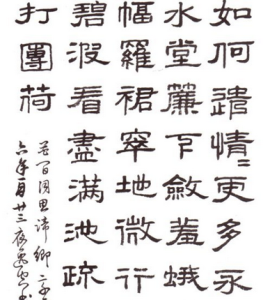 如何遣情〻更多永
水堂簾下斂羞蛾
幅羅裙窣地微行
碧波看盡滿池疏
打團荷
思 鄉
六年 月廿三夜